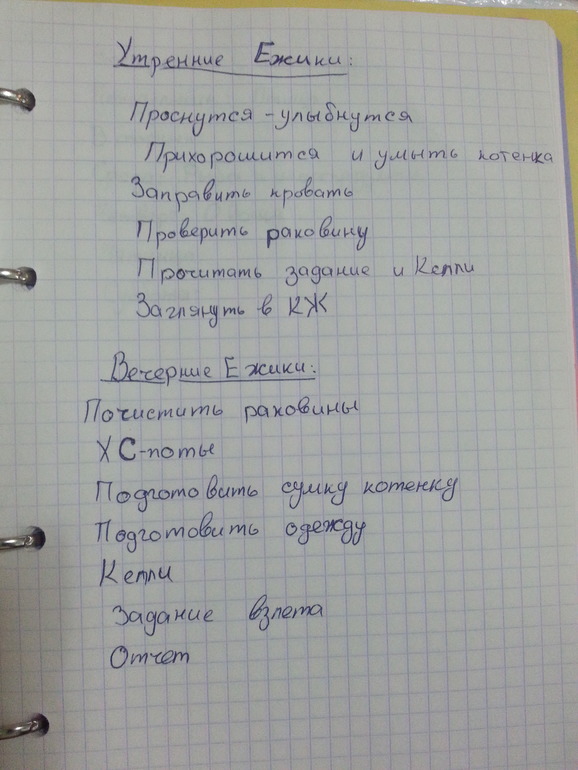 Утренние Ежики:
Проснутся - улыбнутся
Прихорошится и умыть котенка
Заправить кровать
Проверить раковину
Прочитать задание и Келли
Заглянуть в КЖ
Вечерние Ежики:
Почистить раковины
ХС-поты
Подготовить сумку котенку
Подготовить одежду
Келли
Задание взлета
Отчет